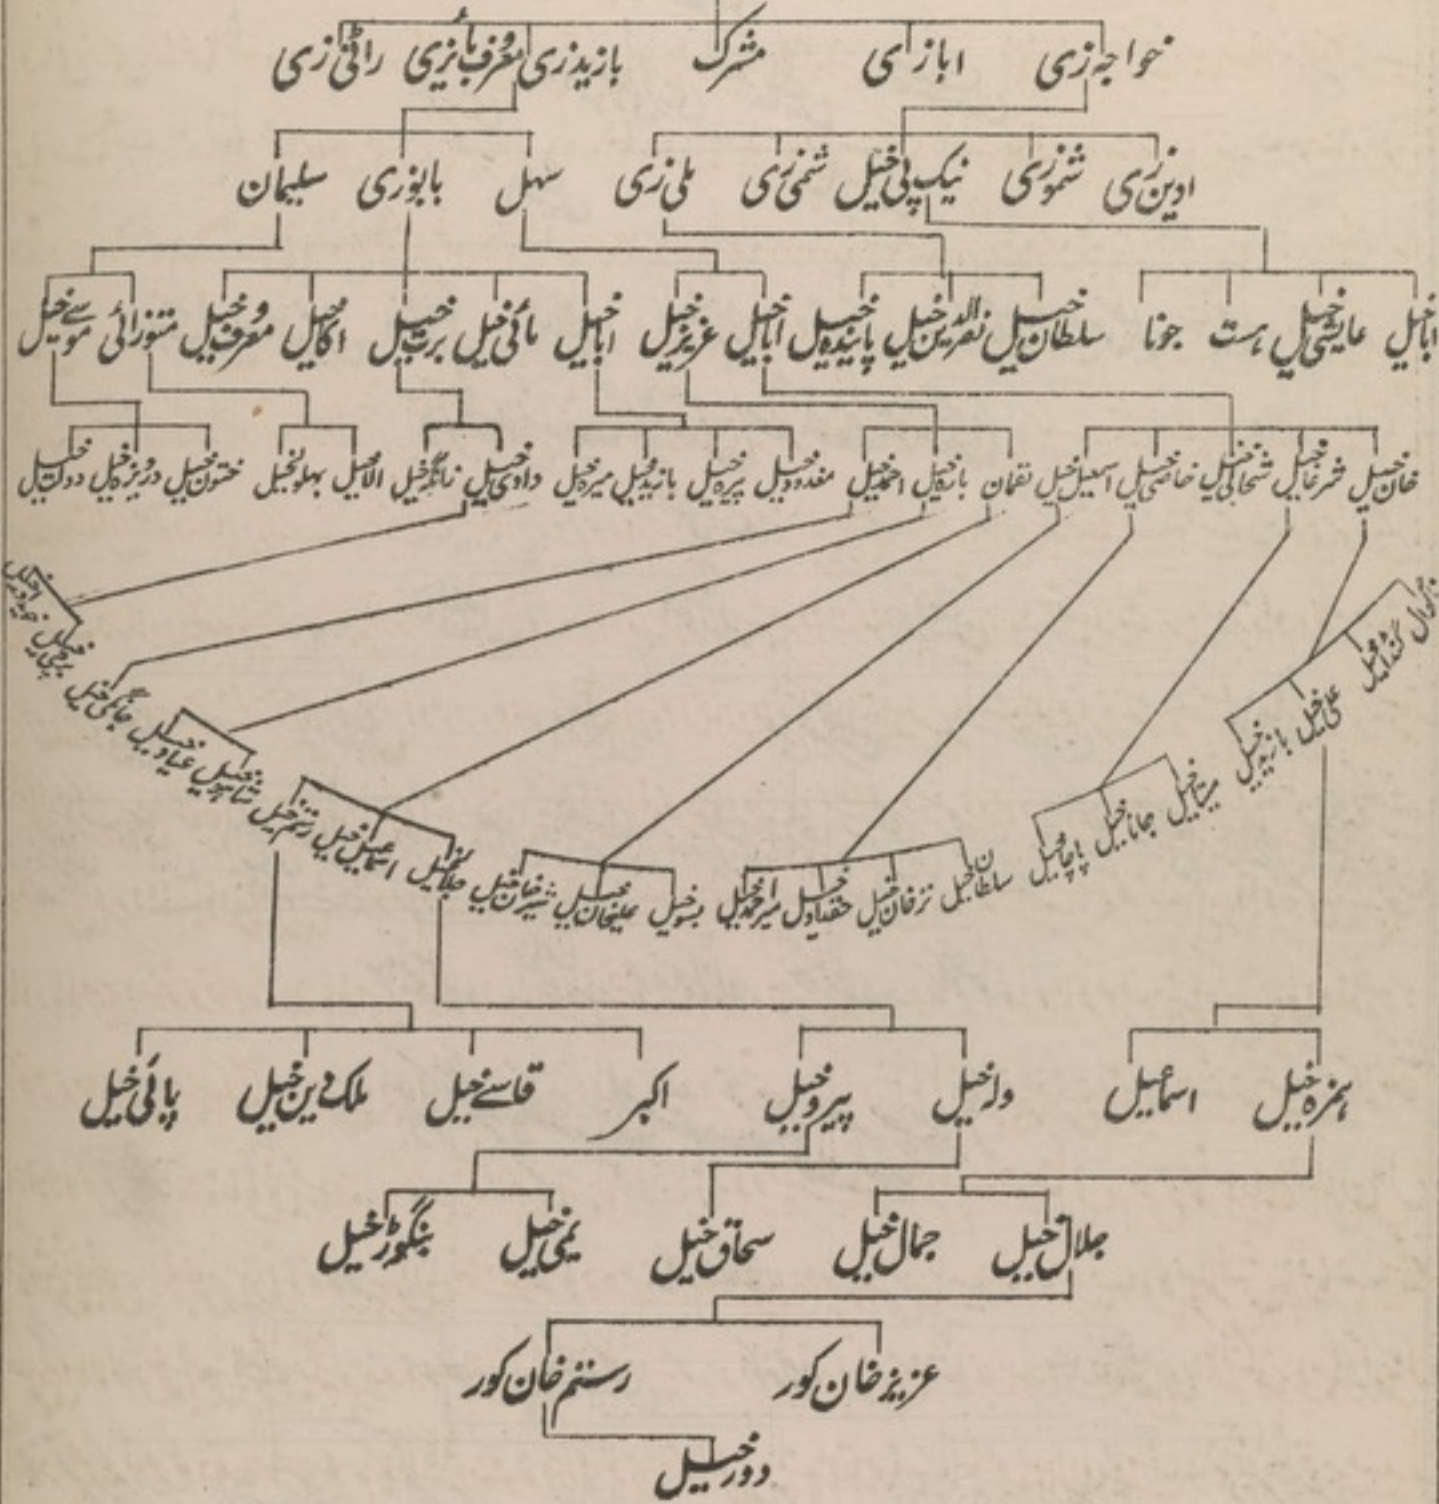 خواجہ زی ابازی مشرک بازیدزی معروف بائزی رائی زی
ادین زی شموزی نیک پی خیل شمی زی ملی زی سہل بابوزی سلیمان
اباخیل عایشی خیل ہست جونا سلطان خیل نصرالدین خیل پایندہ خیل اباخیل عزیز خیل اباخیل مائی خیل برت خیل اکاخیل معروف خیل متوزائی موسے خیل
خان خیل شمرغا خیل خاصی خیل اسمعیل خیل نقمان بازہ خیل احمد خیل پیرہ خیل بازید خیل میرہ خیل دادی خیل الاخیل بہلول خیل ختون خیل دریزہ خیل دولت خیل
علی خیل بازید خیل میتا خیل جانا خیل پاچا خیل سلطان خیل ترفان خیل حقداد خیل میر احمد خیل بسو خیل علیخان خیل شیر خان خیل جلال خیل اسماعیل خیل رستم خیل جانگی خیل
ہمزہ خیل اسماعیل ولہ خیل پیرو خیل اکبر قاسے خیل ملک دین خیل پائی خیل
جلال خیل جمال خیل سحاق خیل یمی خیل بنگوڑ خیل
عزیز خان کور رستم خان کور
دور خیل